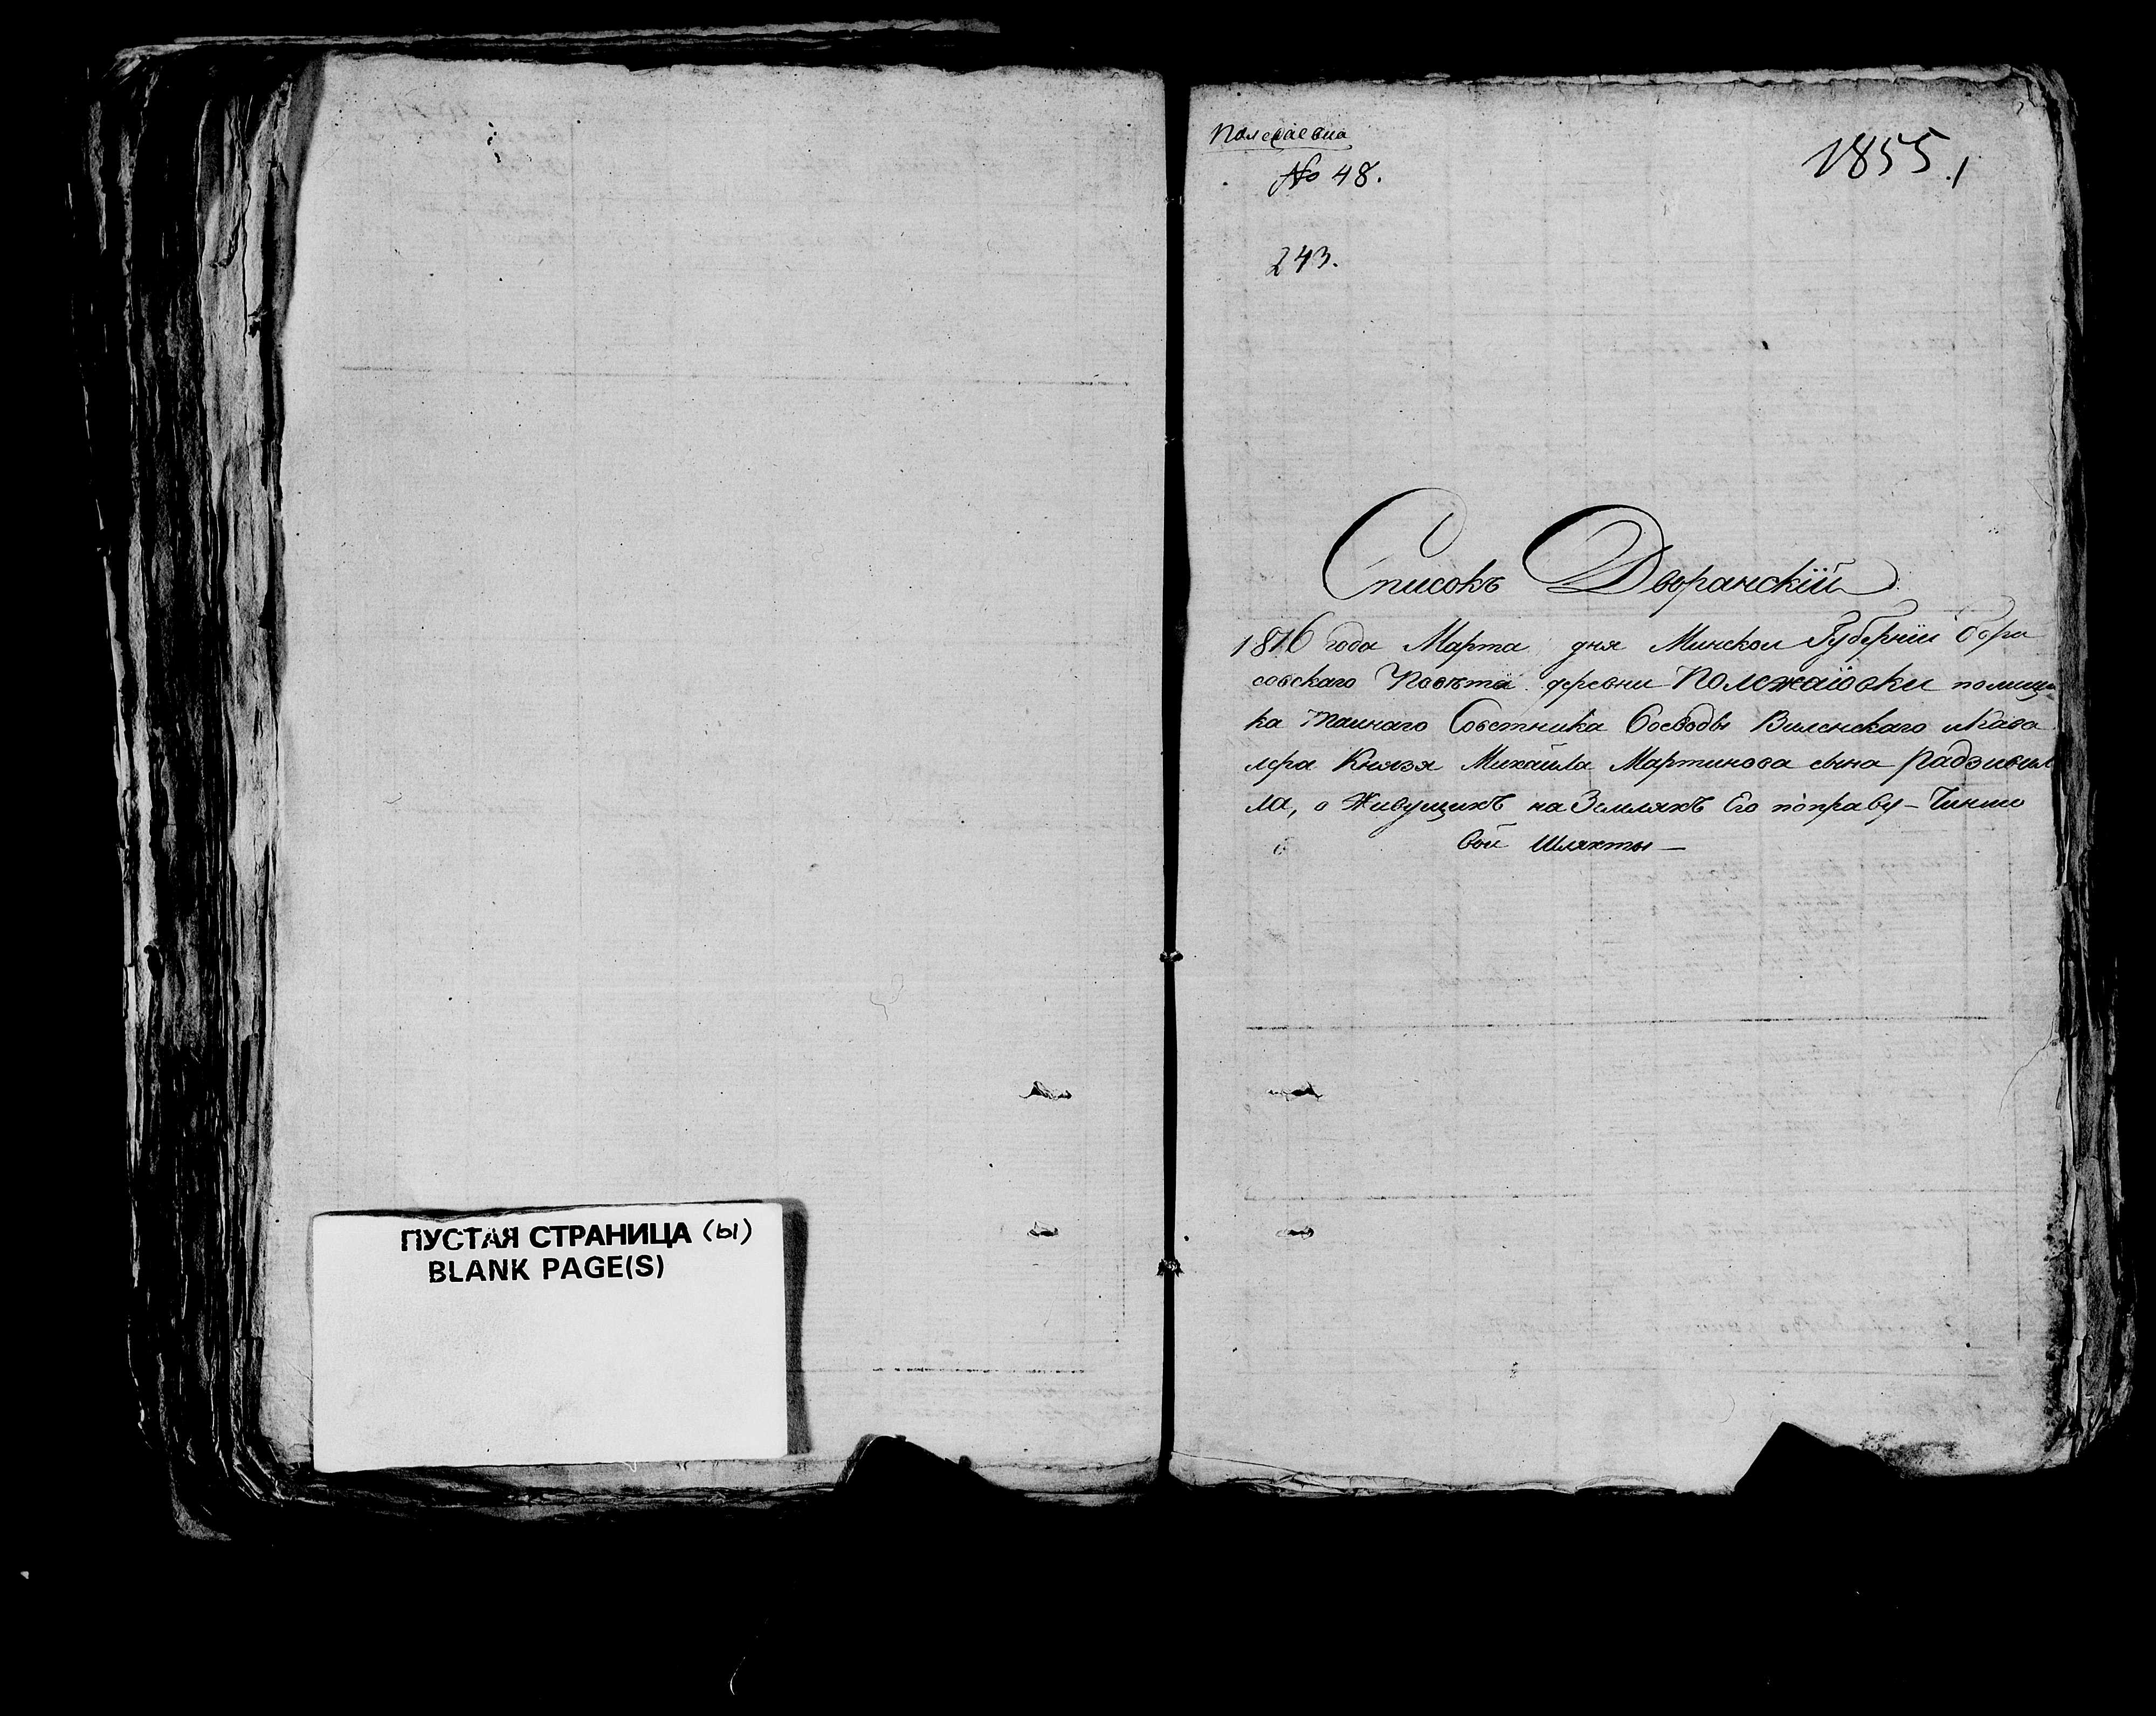 ПУСТАЯ СТРАНИЦА (ы)
BLANK PAGE(S)
No 48.
1855.
243.
Списокъ Дворянскій
1816 года Марта дня Минской Губерніи Бори
совскаго Повѣта деревни помещи
ка тайнаго Совѣтника Воеводы Виленскаго и Кава
лера Князя Михайла Мартинова сына Радзивил
ла, о Живущихъ на Земляхъ Его по праву – Чиншо
вой Шляхты —